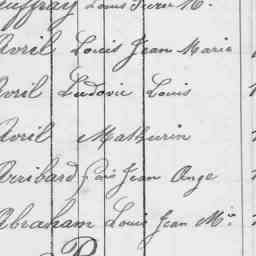 Louis Pierre M.
Avril Louis Jean Marie
Avril Ludovic Louis
Avril Mathurin
Arribard Jean Ange
Abraham Louis Jean M.ie